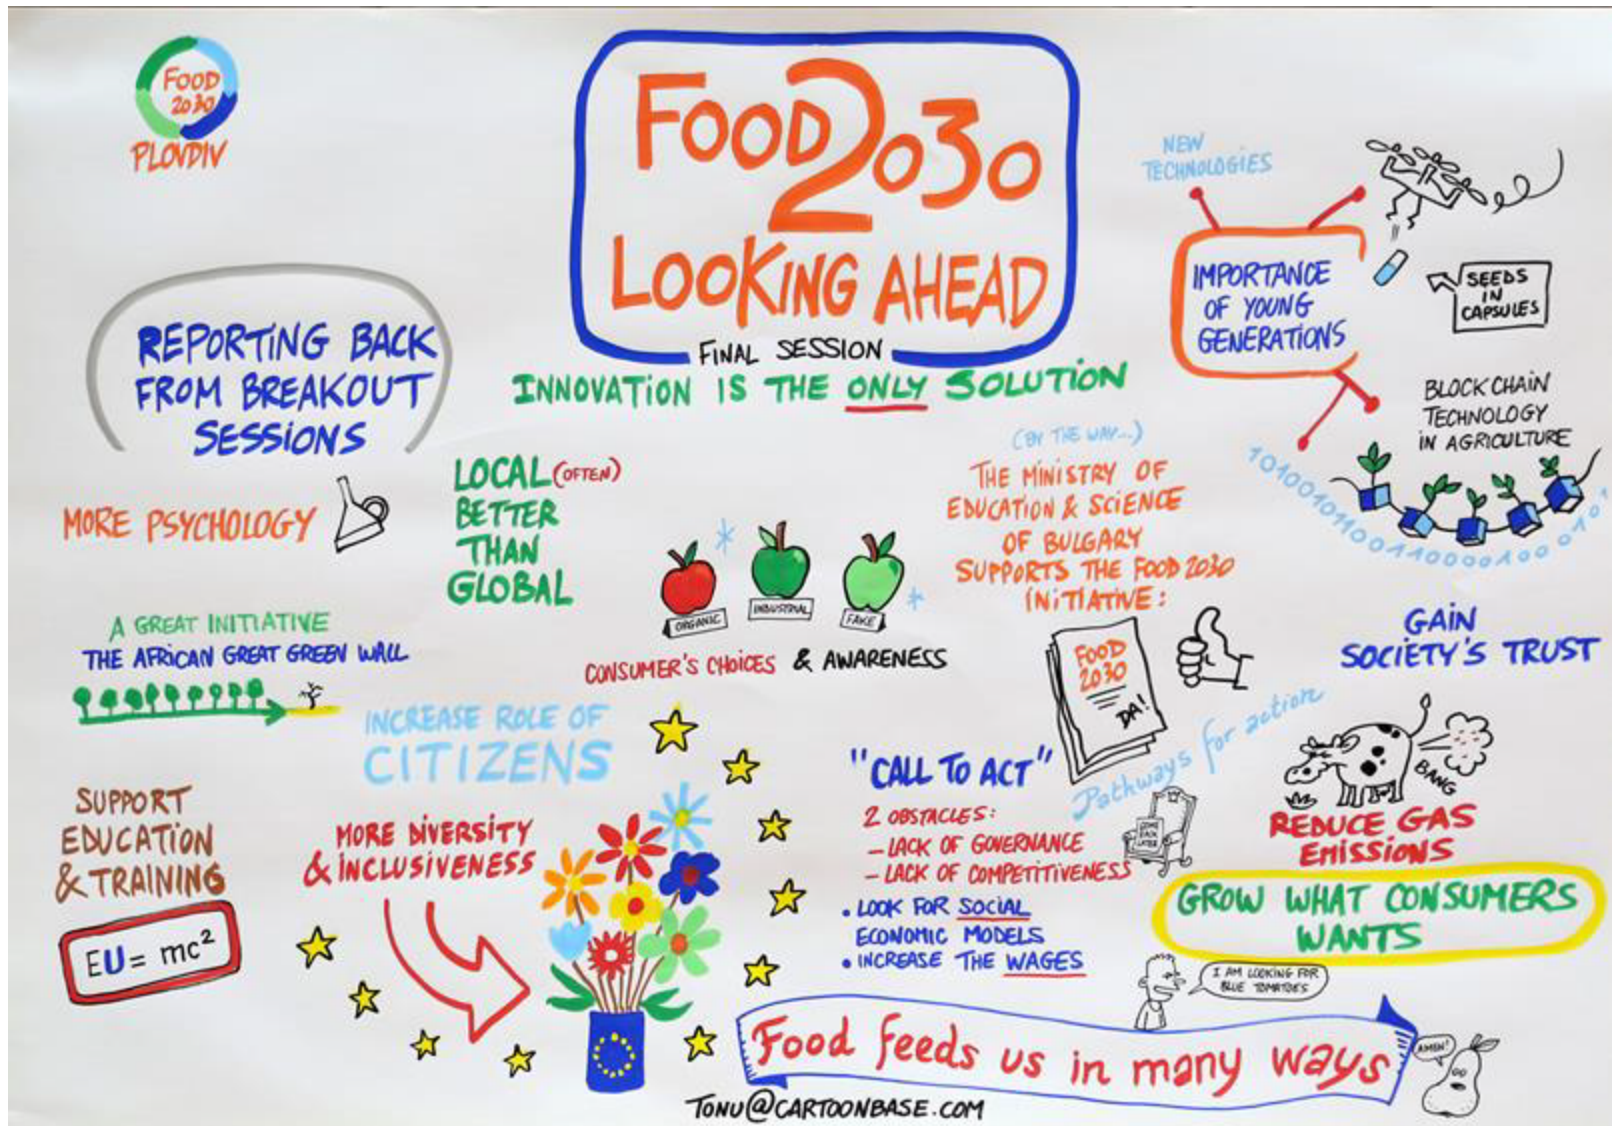 FOOD
2030
PLOVDIV
FOOD 2030
LOOKING AHEAD
FINAL SESSION
INNOVATION IS THE ONLY SOLUTION
REPORTING BACK
FROM BREAKOUT
SESSIONS
MORE PSYCHOLOGY
A GREAT INITIATIVE
THE AFRICAN GREAT GREEN WALL
SUPPORT
EDUCATION
& TRAINING
EU = mc²
LOCAL (OFTEN)
BETTER
THAN
GLOBAL
ORGANIC
INDUSTRIAL
FAKE
CONSUMER'S CHOICES & AWARENESS
INCREASE ROLE OF
CITIZENS
MORE DIVERSITY
& INCLUSIVENESS
(BY THE WAY...)
THE MINISTRY OF
EDUCATION & SCIENCE
OF BULGARY
SUPPORTS THE FOOD 2030
INITIATIVE:
FOOD
2030
DA!
Pathways for action
"CALL TO ACT"
2 OBSTACLES:
- LACK OF GOVERNANCE
- LACK OF COMPETITIVENESS
• LOOK FOR SOCIAL
ECONOMIC MODELS
• INCREASE THE WAGES
COME
BACK
LATER
NEW
TECHNOLOGIES
IMPORTANCE
OF YOUNG
GENERATIONS
SEEDS
IN
CAPSULES
BLOCK CHAIN
TECHNOLOGY
IN AGRICULTURE
GAIN
SOCIETY'S TRUST
BANG
REDUCE GAS
EMISSIONS
GROW WHAT CONSUMERS
WANTS
I AM LOOKING FOR
BLUE TOMATOES
Food feeds us in many ways
AMEN!
TONU@CARTOONBASE.COM